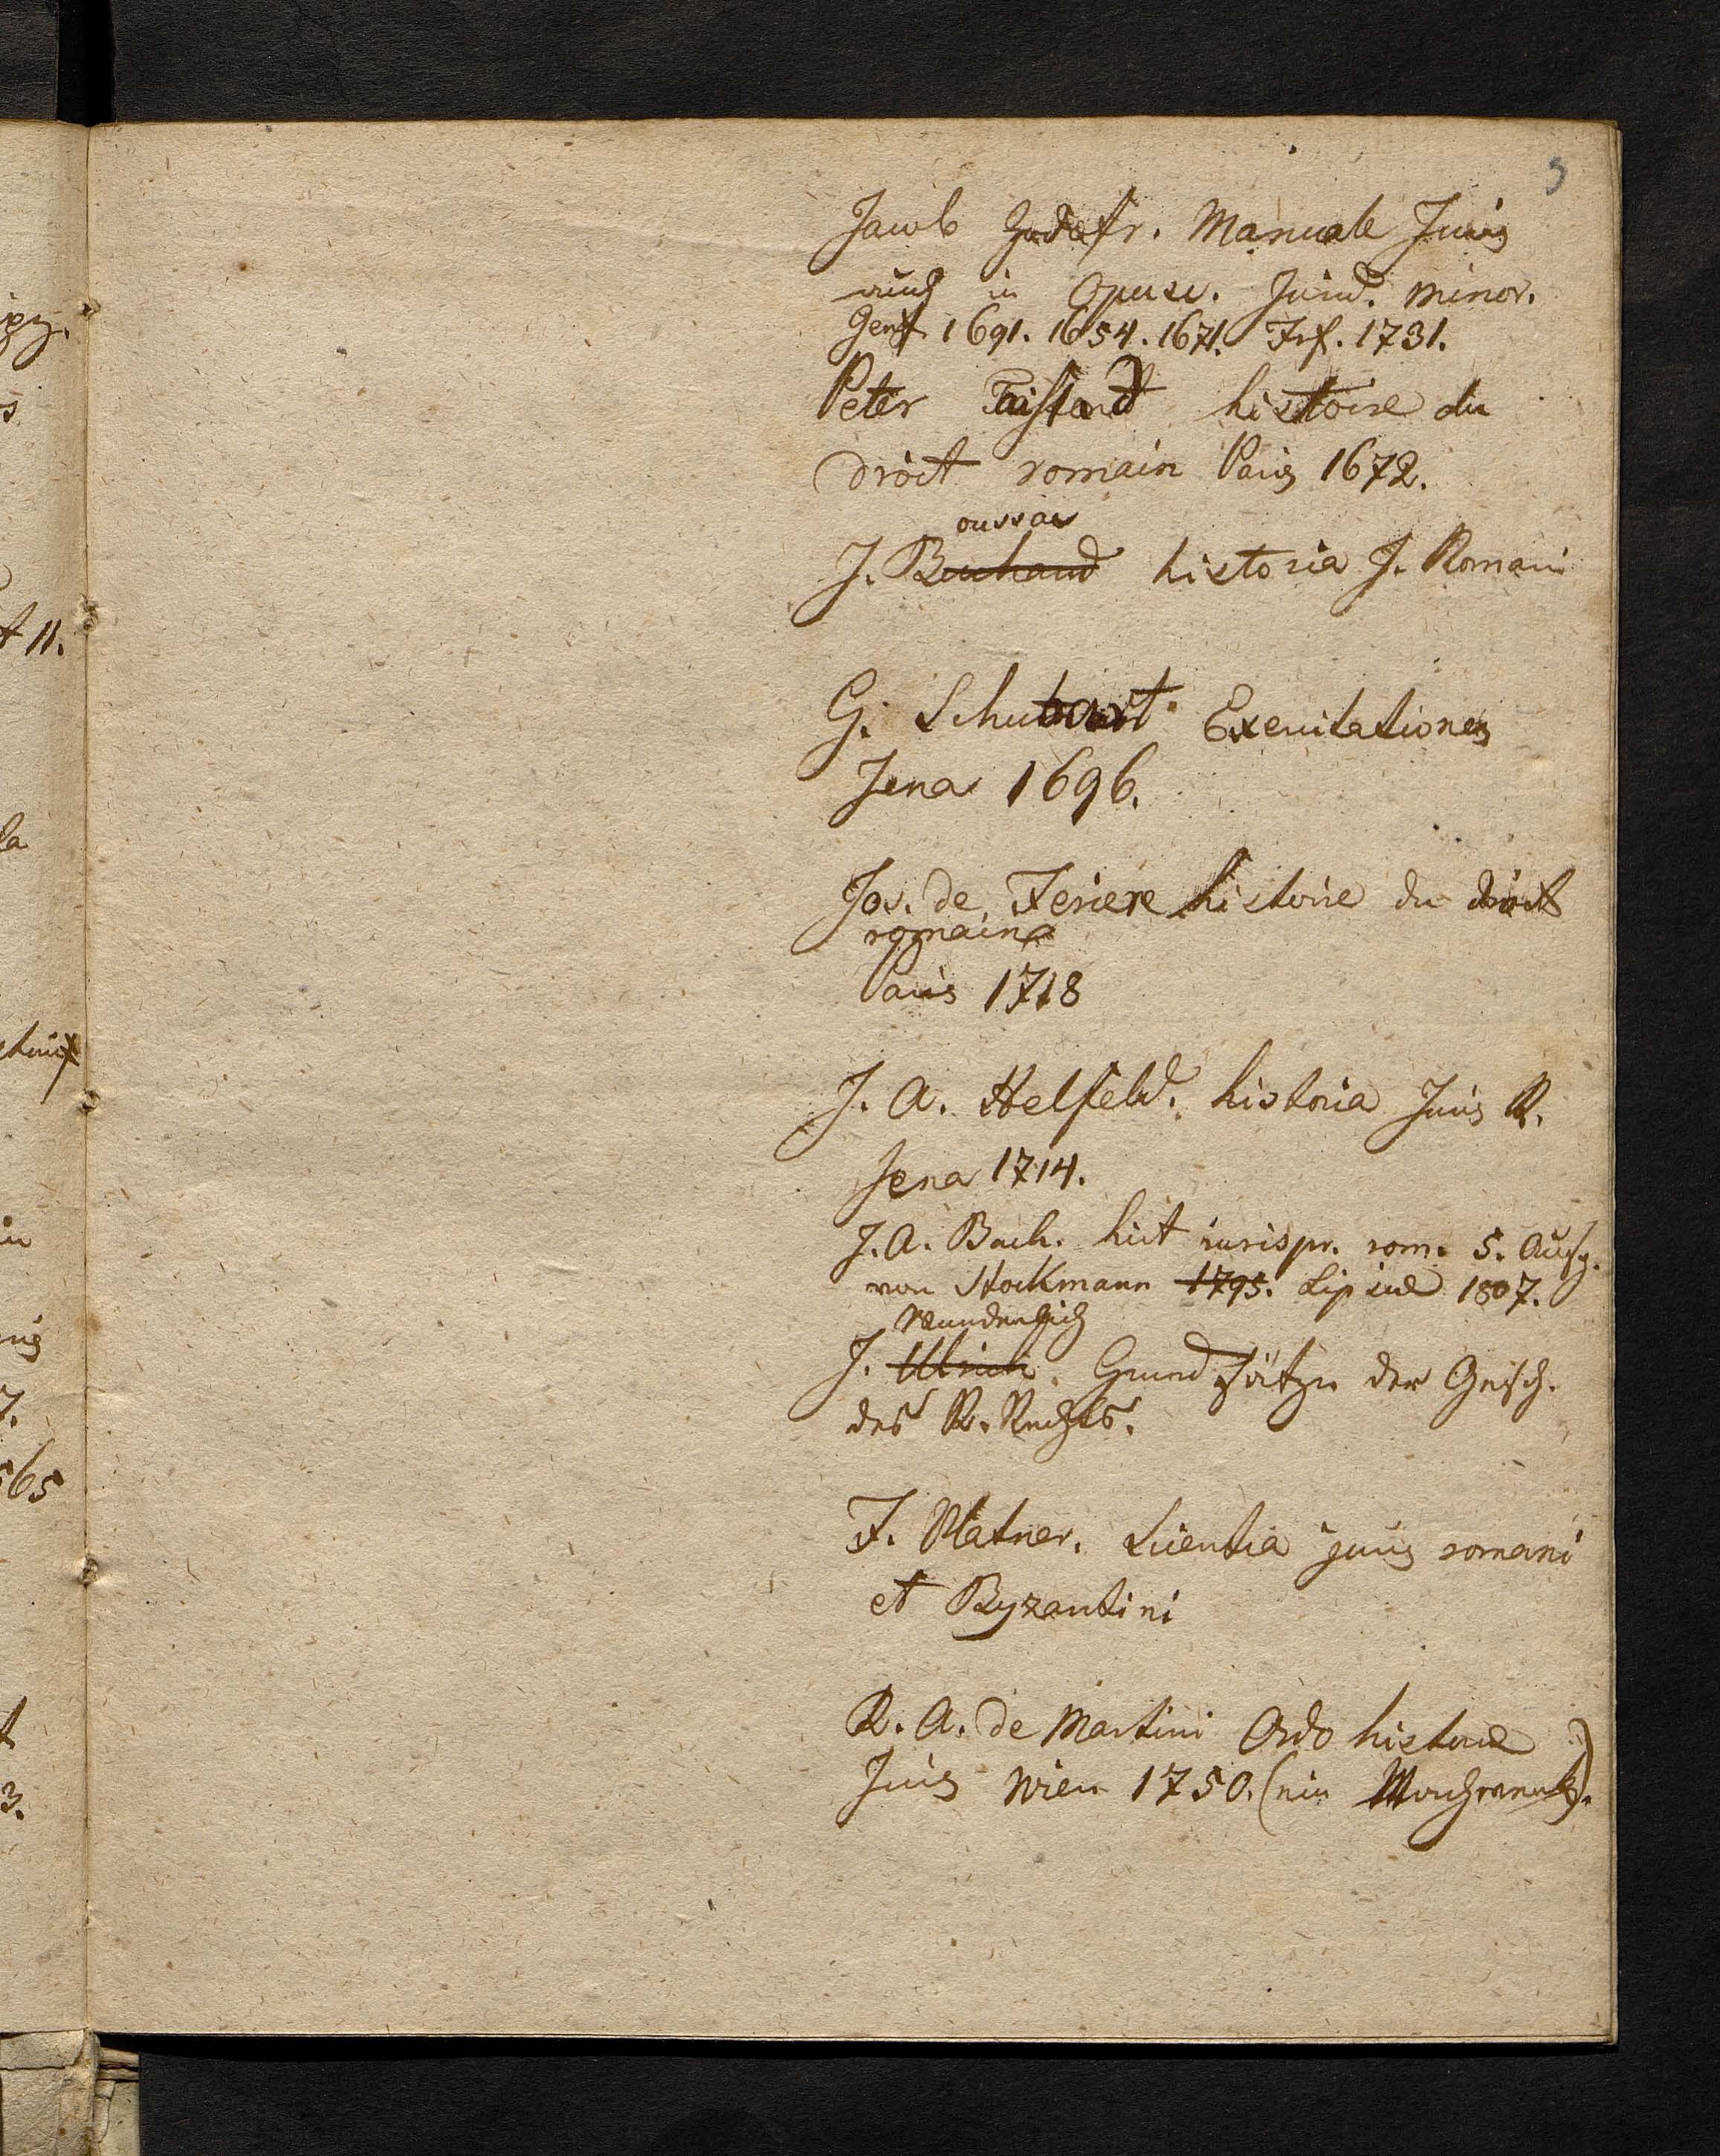 3
Jacob Godefr. Manuale Juris
auch in Opusc. Jurid. minor.
Genf 1691. 1654. 1671. Frf. 1731.
Peter Taisand histoire du
droit romain Paris 1672.
oussar
J. B historia J. Romani
G. Schubart Exercitationes
Jena 1696.
Jos. de Feriere histoire du droit
romain
Paris 1718
J. A. Helfeld. historia Juris R.
Jena 1714.
J. A. Bach. hist iurispr. rom. 5. Ausg.
von Stockmann 1795. Lipsiae 1807.
Wunderlich
J. Ulrich. Grundsätze der Gesch.
des R. Rechts.
F. Platner. Scientia juris romani
et Byzantini
R. A. de Martini Ordo historiae
Juris Wien 1750. (ein Machwerk).
ipz.
s
t 11.
la
in
7.
565
t
3.